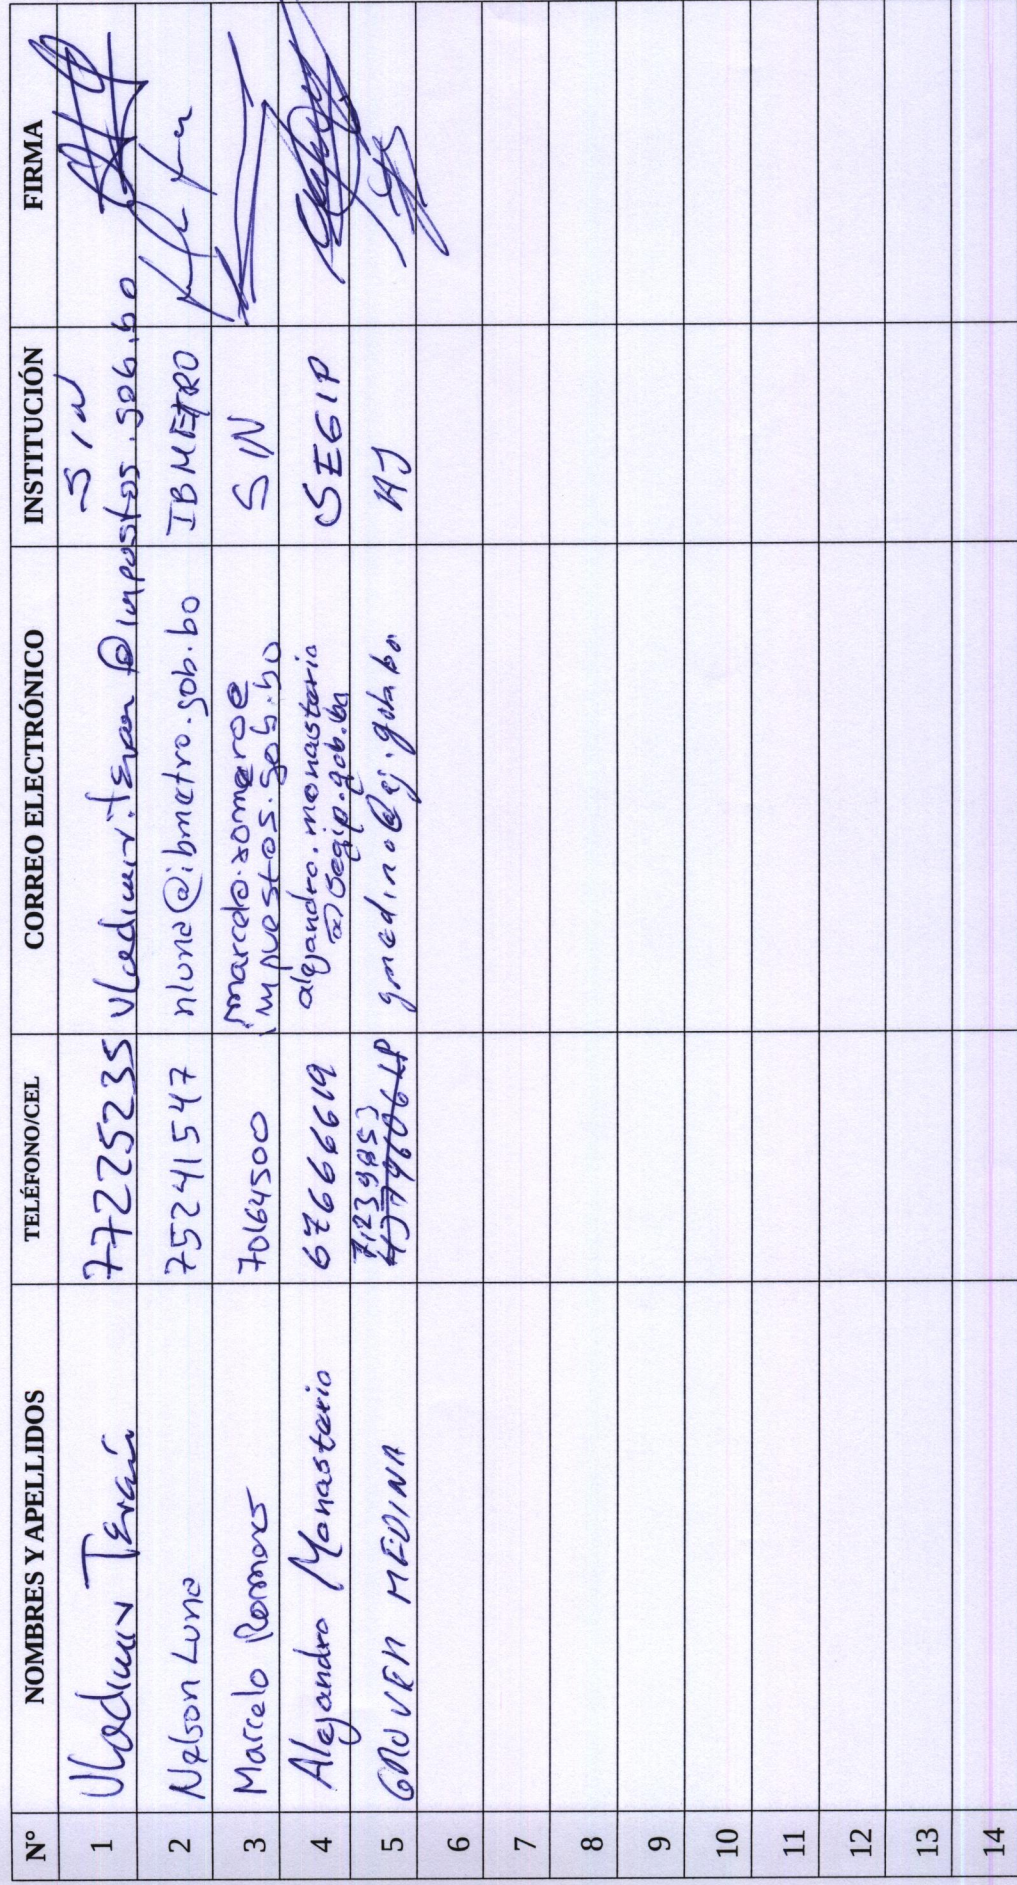 Nº NOMBRES Y APELLIDOS TELÉFONO/CEL CORREO ELECTRÓNICO INSTITUCIÓN FIRMA
1 Vladimir Terán 77225235 vladimir.teran@impuestos.gob.bo SIN
2 Nelson Luna 75241547 nluna@ibmetro.gob.bo IBMETRO
3 Marcelo Romero 70164500 marcelo.romero@
impuestos.gob.bo SIN
4 Alejandro Monasterio 67666619 alejandro.monasterio
@segip.gob.bo SEGIP
5 GROVER MEDINA gmedina@aj.gob.bo AJ
6
7
8
9
10
11
12
13
14